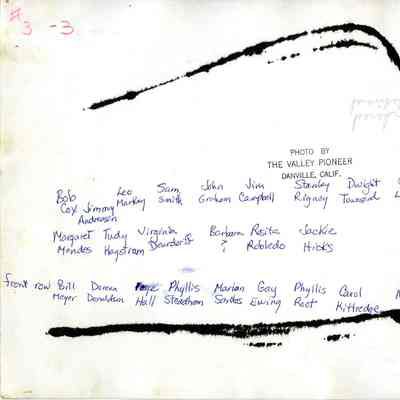 #3 -3
PHOTO BY
THE VALLEY PIONEER
DANVILLE, CALIF.
Bob Leo Sam John Jim Stanley Dwight
Cox Jimmy Markey Smith Graham Campbell Rigney Townsend
Andreasen
Margaret Tudy Virginia Barbara Rosita Jackie
Mendes Hagstrom Beardorff ? Robledo Hicks
front row Bill Doreen Phyllis Marian Gay Phyllis Carol
Meyer Donaldson Hall Steadham Ewing Root Kittredge